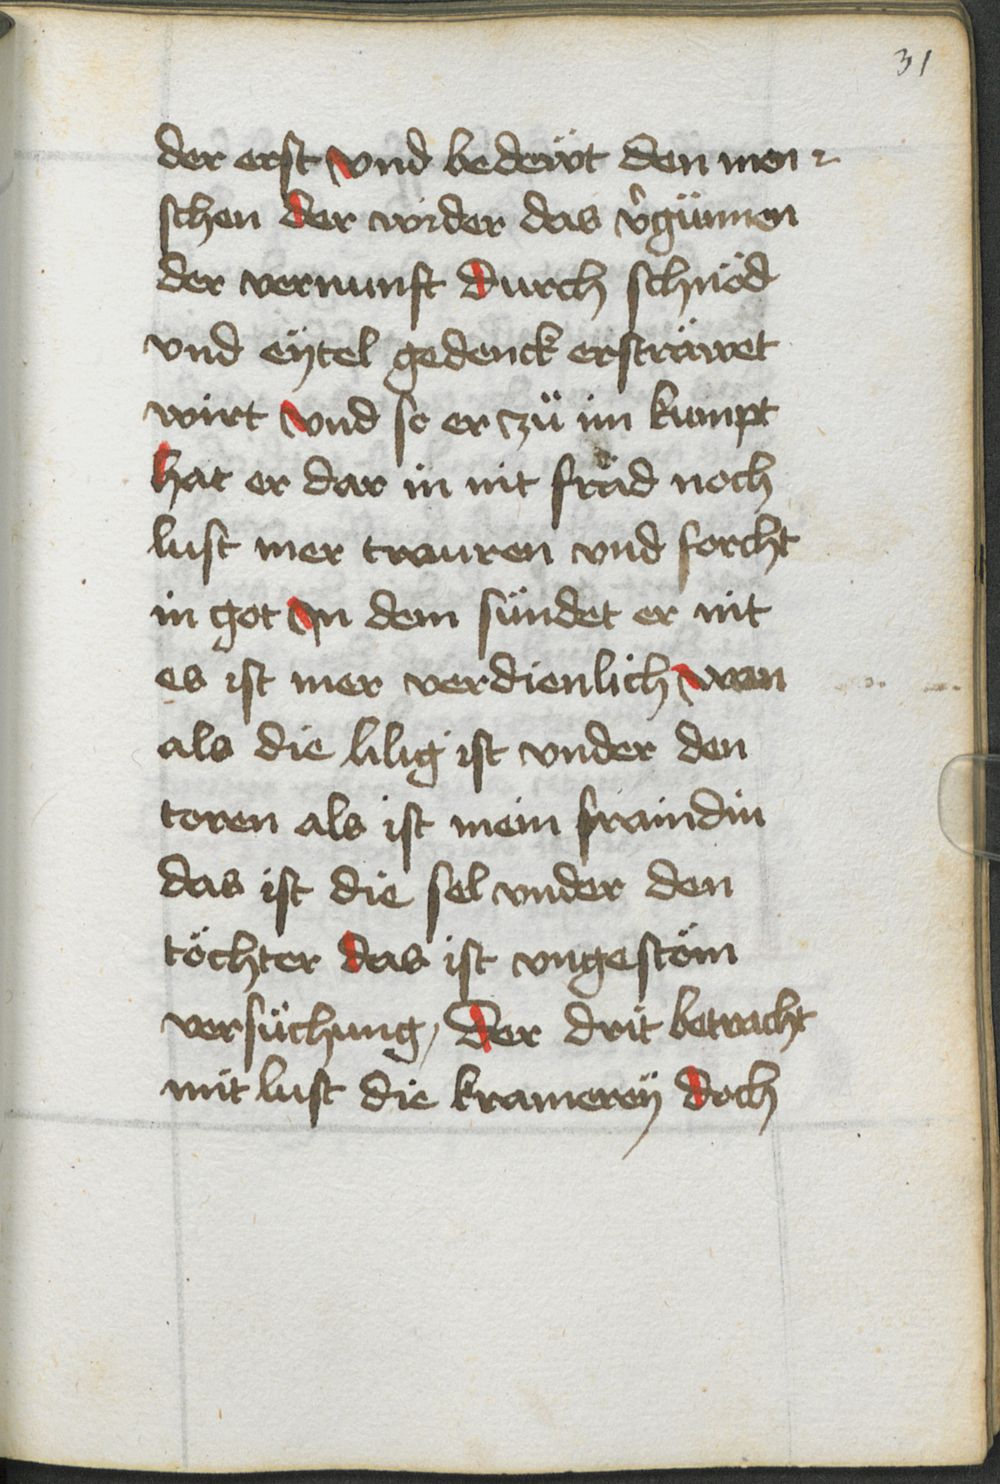 31
der erst vnd bedeẅt den men
schen der wider das v̾günnen
der vernunft durch schnöd
vnd eÿtel gedenck erströwet
wirt vnd so er zü im kumpt
hat er dar in nit fräd noch
lust mer trauren vnd forcht
in got vn dem sündet er nit
es ist mer verdienlich wen
als die lilig ist vnder den
toren als ist mein fraindin
das ist die sel vnder den
töchter das ist vngestöm
versüchung / Der drit betracht
mit lust die kramerey̆ doch